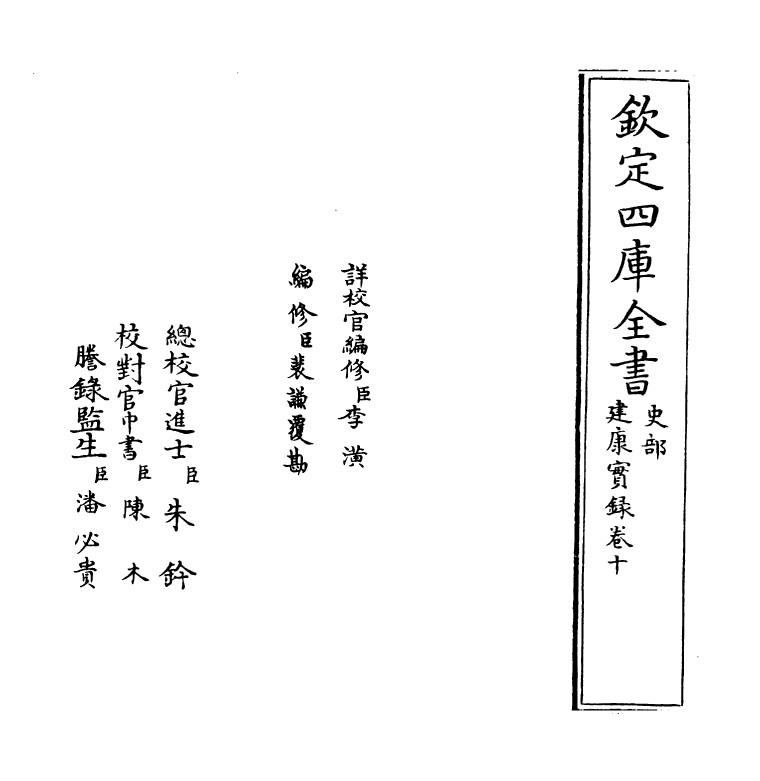 欽定四庫全書
史部
建康實錄卷十
詳校官編修臣李潢
編修臣裴謙覆勘
總校官進士臣朱鈐
校對官中書臣陳木
謄錄監生臣潘必貴